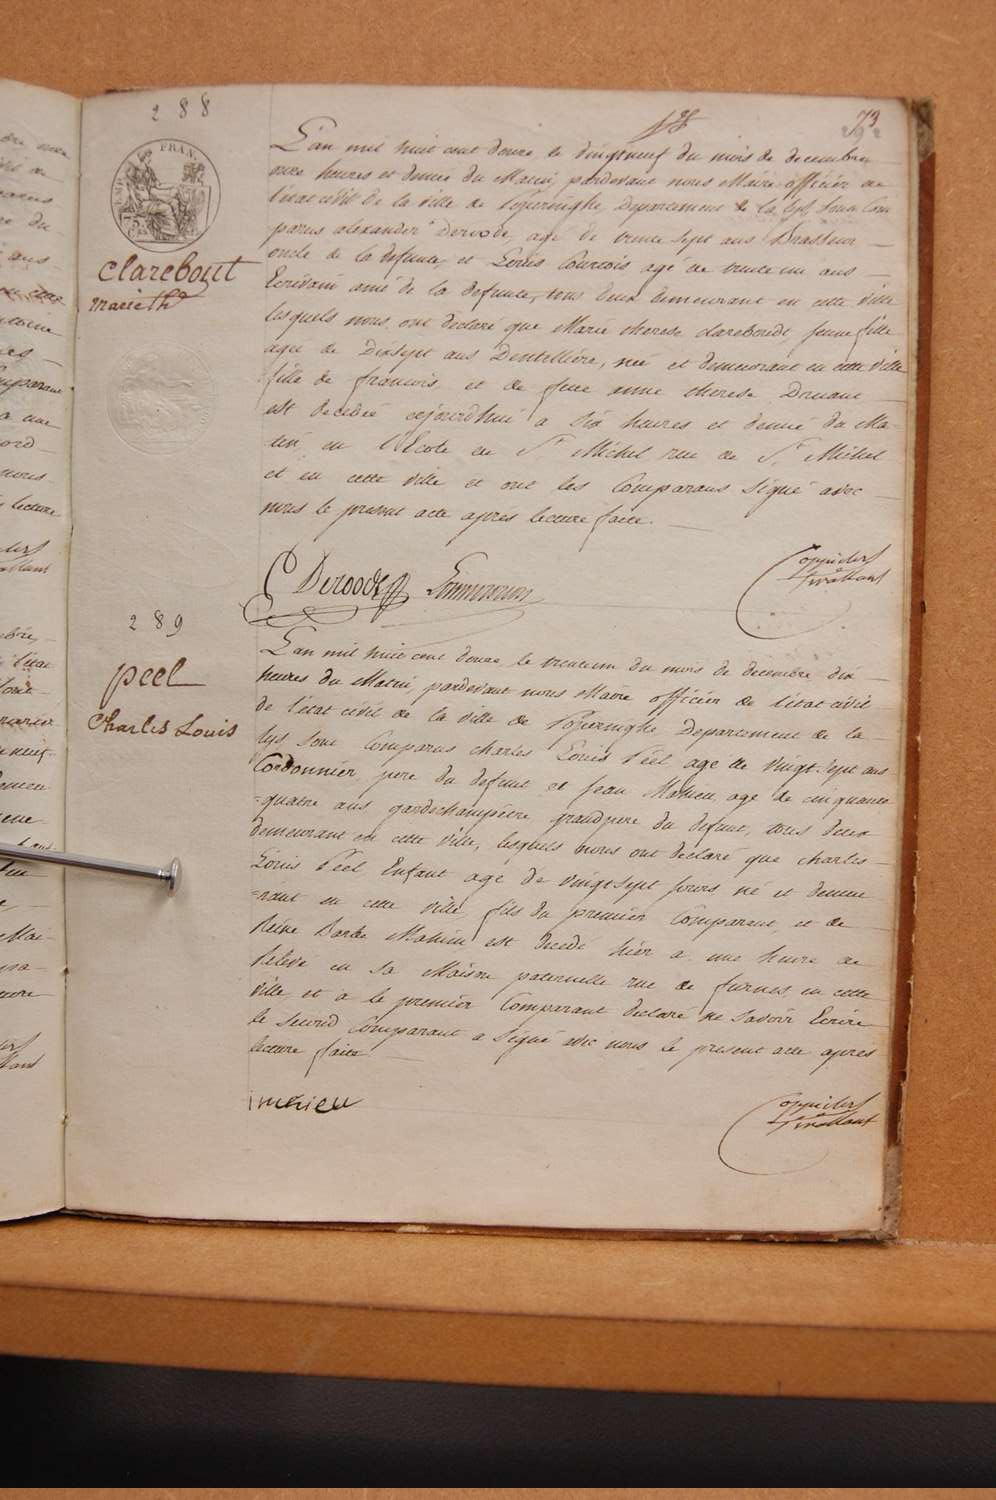 288
73
292
EMP. FRAN.
Clarebout
Marie Th.
L'an mil huit cent douze le vingtneuf du mois de decembre
onze heures et demie du Matin, pardevant nous Maire officier de
l'état civil de la ville de Poperinghe, Departement de la Lys, sont Com
parus alexander Deroode, agé de trente sept ans Brasseur
oncle de la defunte, et Louis Courtois agé de trente un ans
Ecrivain amis de la defunte, tous deux demeurant en cette ville
lesquels nous ont declaré que Marie therese clareboudt jeune fille
agée de Dixsept ans Dentellière, née et demeurant en cette ville
fille de francois et de feue anne therese Druant
est decedée aujourd'hui a six heures et demie du Ma-
tin, en l'Ecole de St Michel rue de St Michel
et en cette ville et ont les Comparans signé avec
nous le present acte apres lecture faite.
C Deroode
Coppieters
Stivallant
289
peel
Charles Louis
L'an mil huit cent douze, le trenteun du mois de decembre dix
heures du Matin, pardevant nous Maire officier de l'état civil
de l'état civil de la ville de Poperinghe Departement de la
Lys sont Comparus charles Louis Péel agé de vingt sept ans
Cordonnier, pere du defunt et Jean Mahieu, agé de cinquante
=quatre ans gardechampètre grandpere du defunt, tous deux
demeurant en cette ville, lesquels nous ont declaré que charles
Louis Péel Enfant agé de vingtsept jours né et demeu
=rant en cette ville, fils du premier Comparant, et de
Reine Barbe Mahieu est decedé hier a une heure de
Relevé en sa Maison paternelle rue de furnes, en cette
ville et a le premier Comparant declaré ne savoir Ecrire
le second Comparant a signé avec nous le present acte apres
lecture faite
imhieu
Coppieters
Stivallant